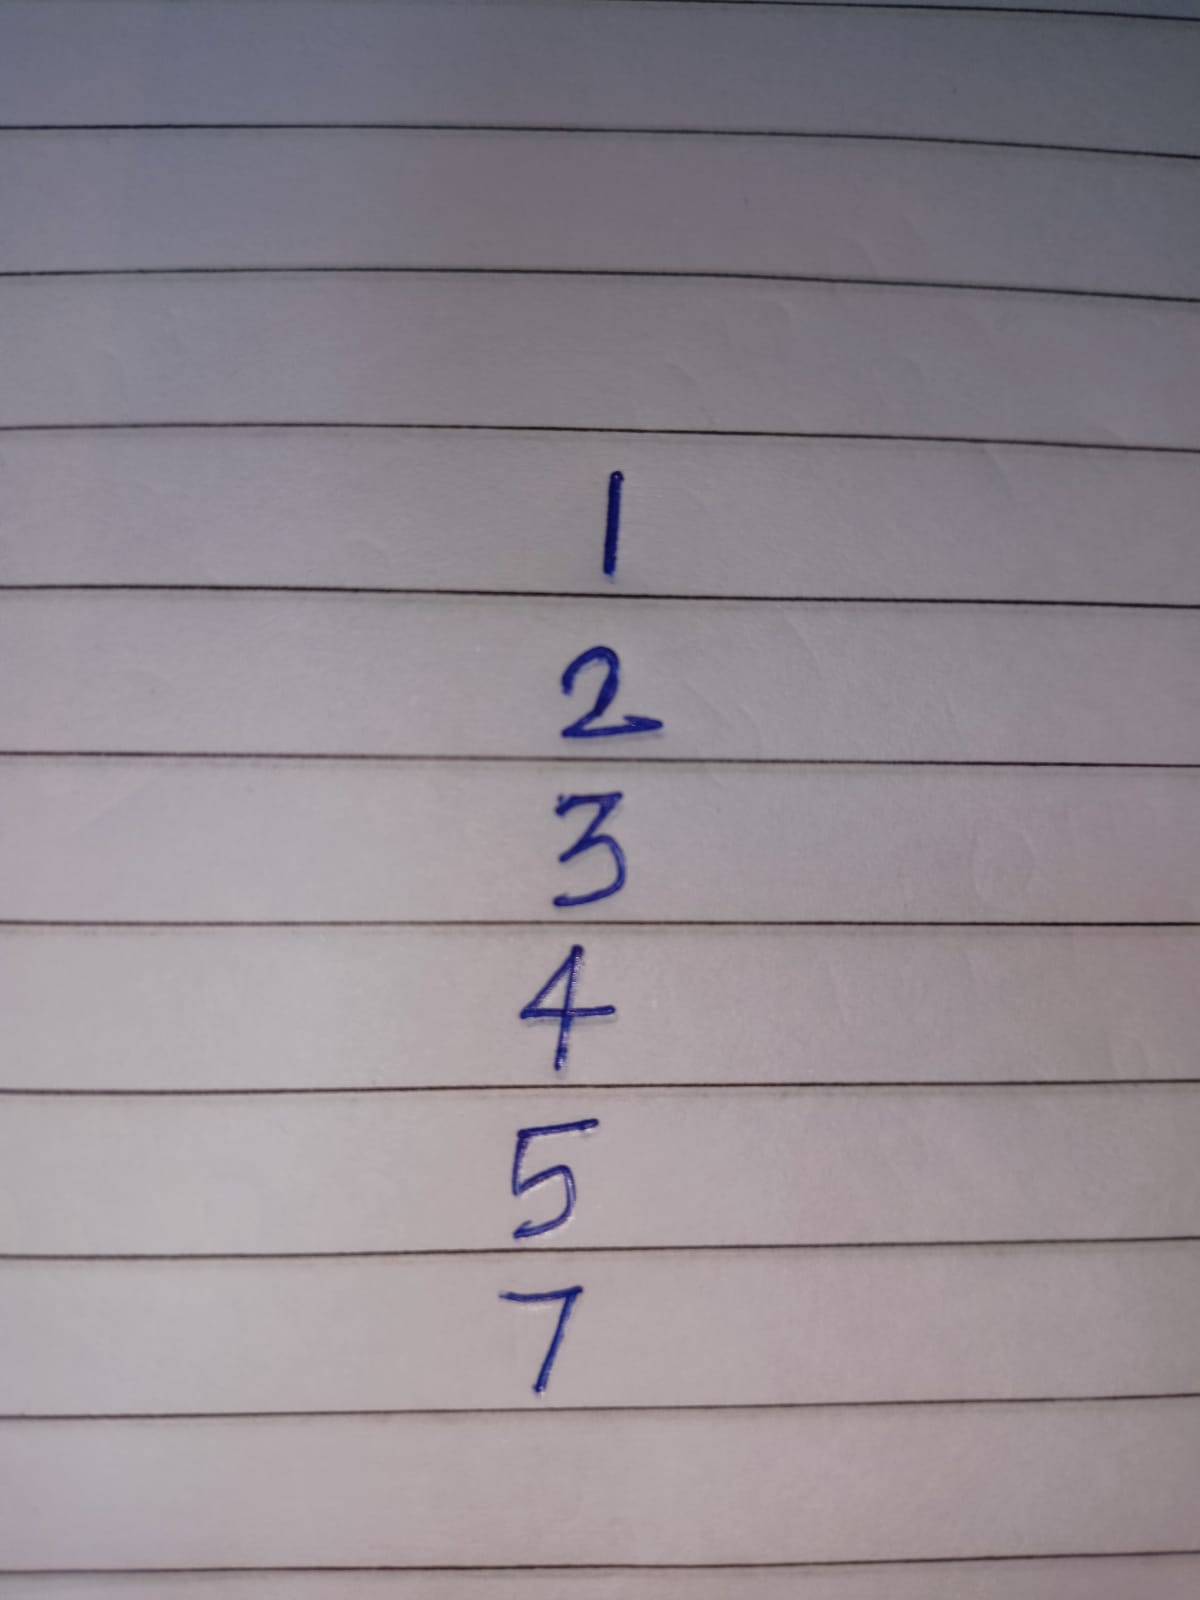 1
2
3
4
5
7